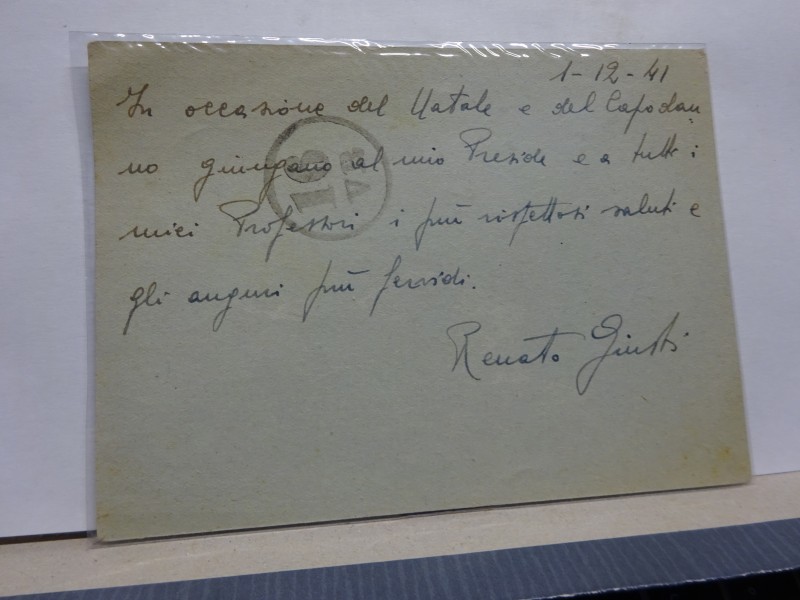 1-12-41
In occasione del Natale e del Capodan-
no giungano al mio Preside e a tutti i
miei Professori i più rispettosi saluti e
gli auguri più fervidi.
Renato Giusti